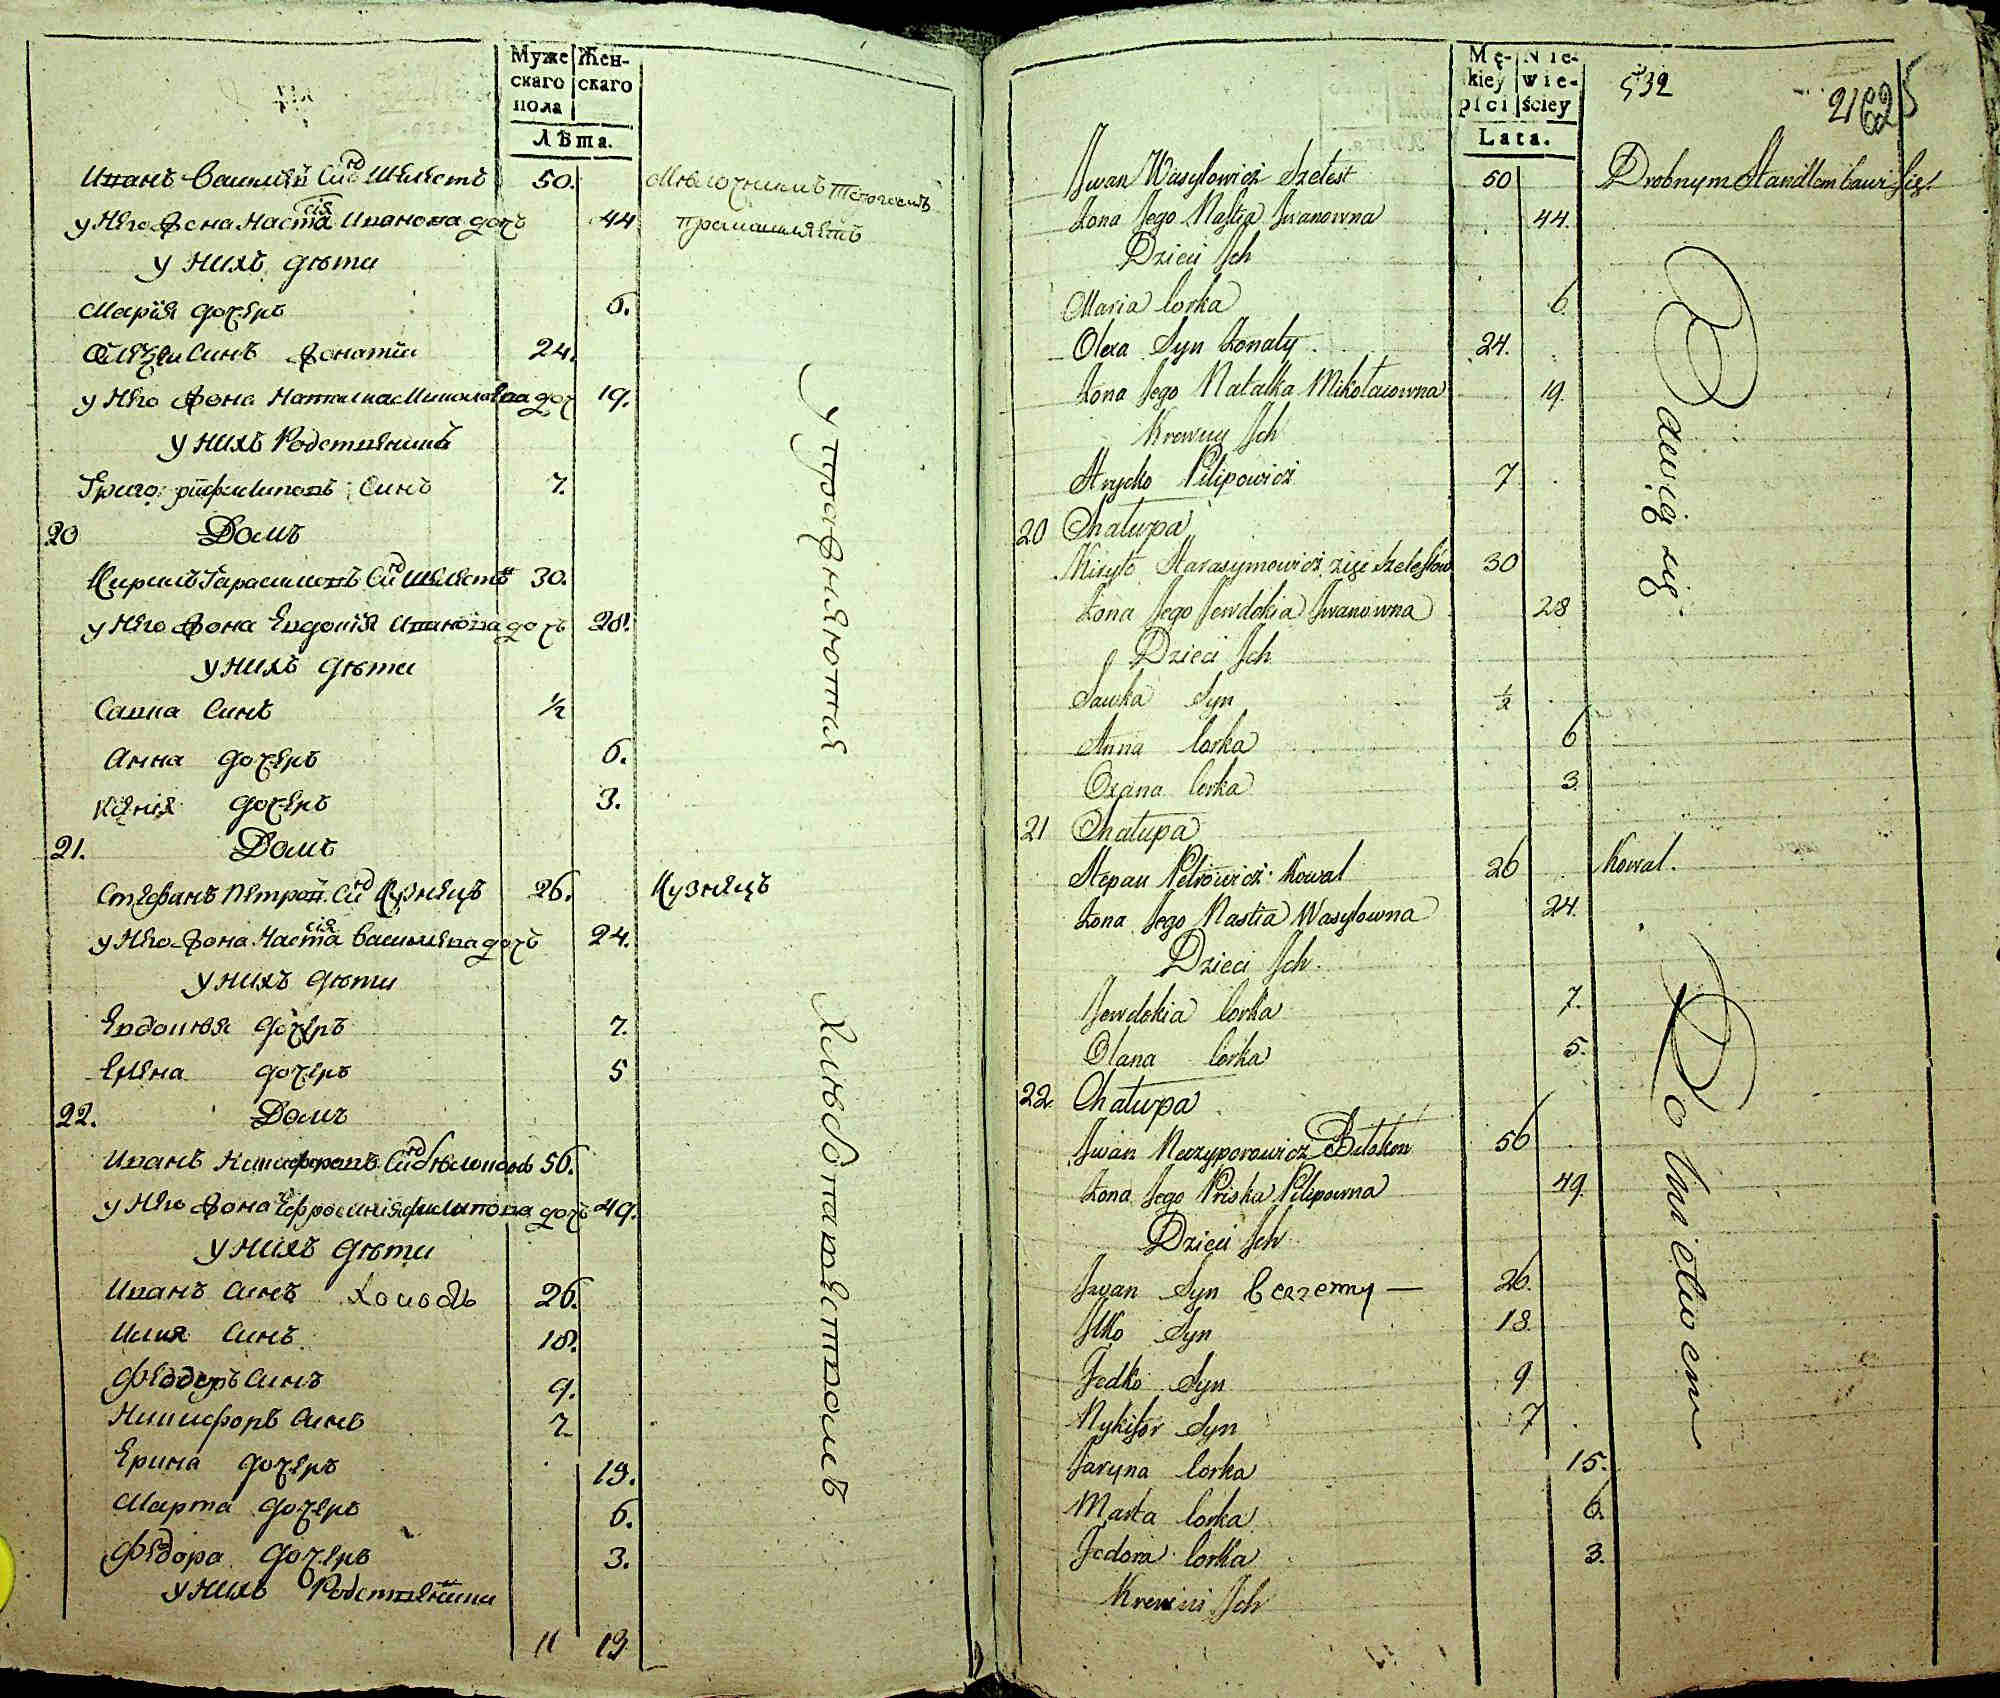 Муже
скаго
пола
Жен-
скаго
Лѣта.
Иванъ Василіевъ Снъ Шелестъ 50.
у него жена Настасія Иванова дочь 44
у нихъ дѣти
Марія дочерь 6.
Алеѯѣи Синъ жонатіи 24.
у него жена Наталка Миколаева доч 19.
у нихъ Родственникъ
Григорій филиповъ Синъ 7.
20 Домъ
Кирилъ Гарасимовъ Снъ Шелестъ 30.
у него жена Евдокія Иванова дочь 28.
у нихъ дѣти
Савка Синъ ½
Анна дочерь 6.
Ксенія дочерь 3.
21. Домъ
Стефанъ Петровъ Снъ Кузнецъ 26. Кузнецъ
у него жена Настасія Василіева дочь 24.
у нихъ дѣти
Евдокія дочерь 7.
Елена дочерь 5
22. Домъ
Иванъ Никифоровъ Снъ Бѣлоконь 56.
у него жена Ефросинія филипова дочь 49.
у нихъ дѣти
Иванъ Синъ 26.
Илия Синъ 18.
Феддеръ Синъ 9.
Никифоръ Синъ 7
Ерина дочерь 15.
Марта дочерь 6.
Федора дочерь 3.
у нихъ Родственники
11 19
Мелочнимъ Тогомъ
промишляетъ
упражняются
Хлѣбопашествомъ
Mę-
kiey
płci
Nie-
wie-
ściey
Lata.
532
2162 5
Jwan Wasylowicz Szelest 50 Drobnym Handlem bawi się
Żona Jego Nastia Jwanowna 44.
Dzieci Jch
Maria Corka 6
Olexa Syn Żonaty 24.
Żona Jego Natalka Mikołaiowna 19.
Krewny Jch
Hrycko Pilipowicz 7
20 Chałupa
Kiryło Harasymowicz zięć Szelestów 30
Żona Jego Jewdokia Jwanowna 28
Dzieci Jch
Sawka Syn ½
Anna Corka 6
Oxana Corka 3
21 Chałupa
Stepan Petrowicz Kowal 26 Kowal.
Żona Jego Nastia Wasylowna 24.
Dzieci Jch.
Jewdokia Corka 7.
Olana Corka 5.
22 Chałupa
Jwan Neczyporowicz Biłokon 56
Żona Jego Priska Pilipowna 49
Dzieci Jch
Jwan Syn 26.
Jlko Syn 18
Fedko Syn 9
Nykifor Syn 7
Jaryna Corka 15.
Marta Corka 6.
Fedora Corka 3.
Krewni Jch
Bawią się
Rolnictwem